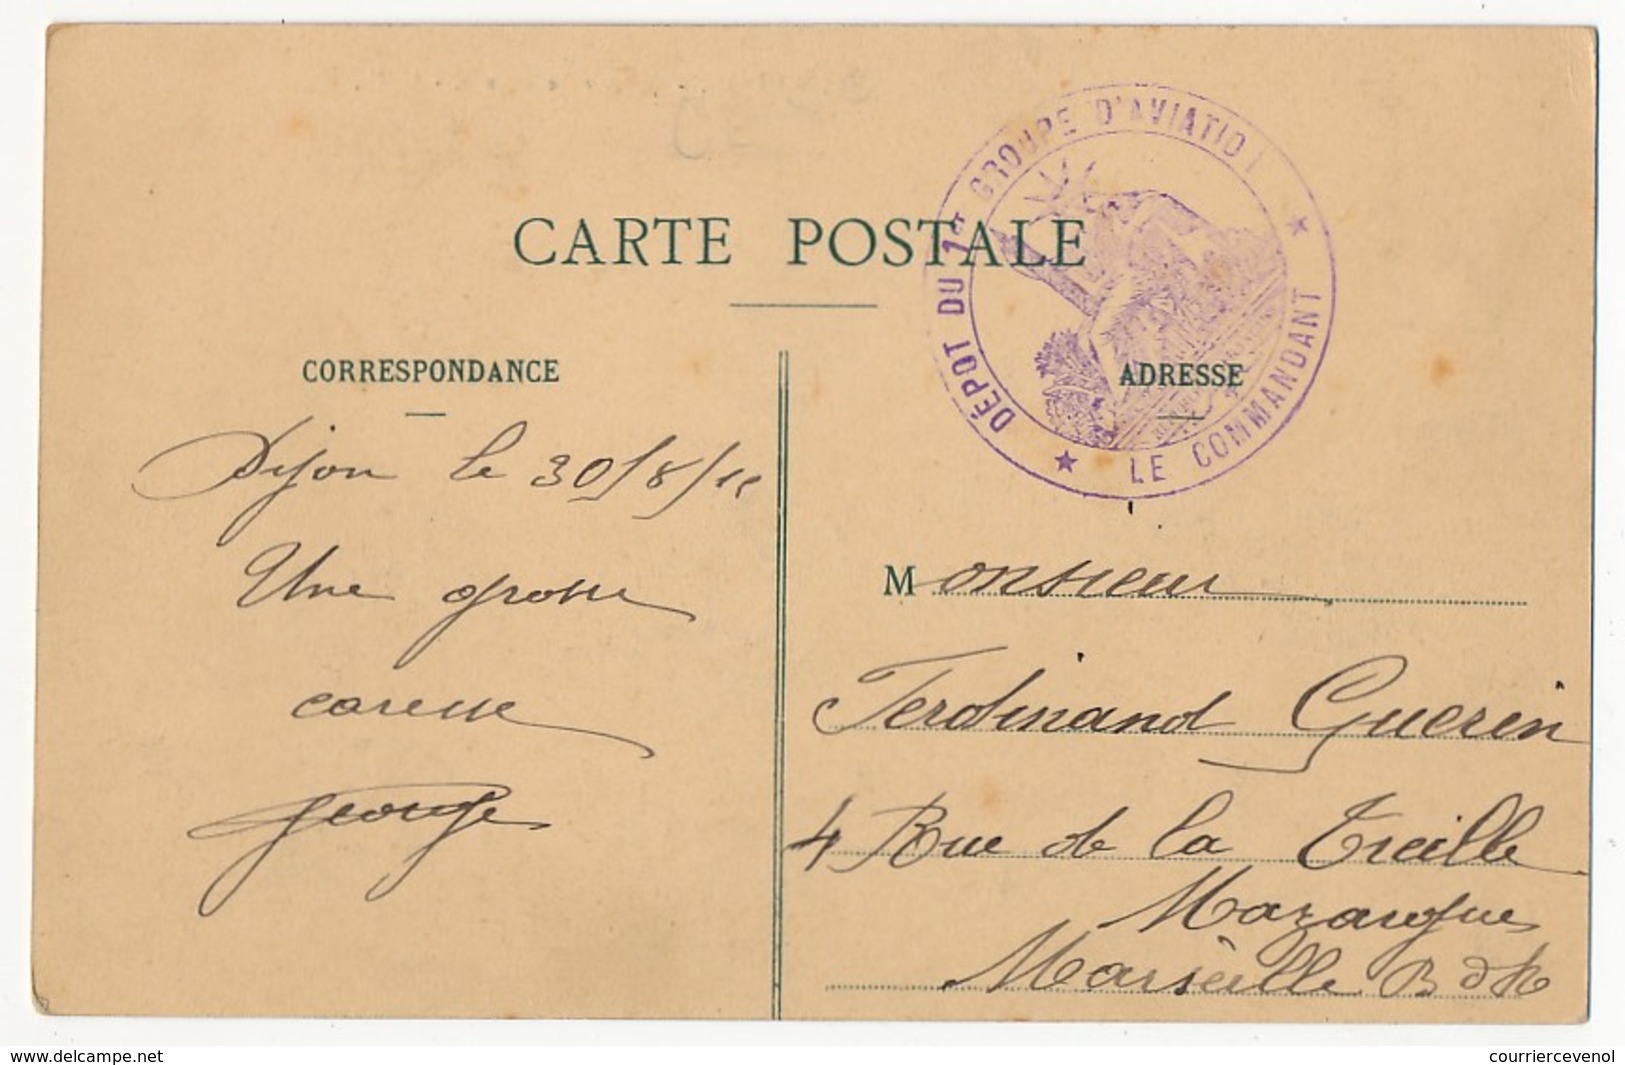 CARTE POSTALE
DÉPOT DU 1er GROUPE D'AVIATIO
LE COMMANDANT
CORRESPONDANCE
Dijon le 30/8/1
Une grosse
caresse
George
ADRESSE
Monsieur
Ferdinand Guerin
4 Rue de la Treille
Mazargues
Marseille B d R
www.delcampe.net
courriercevenol